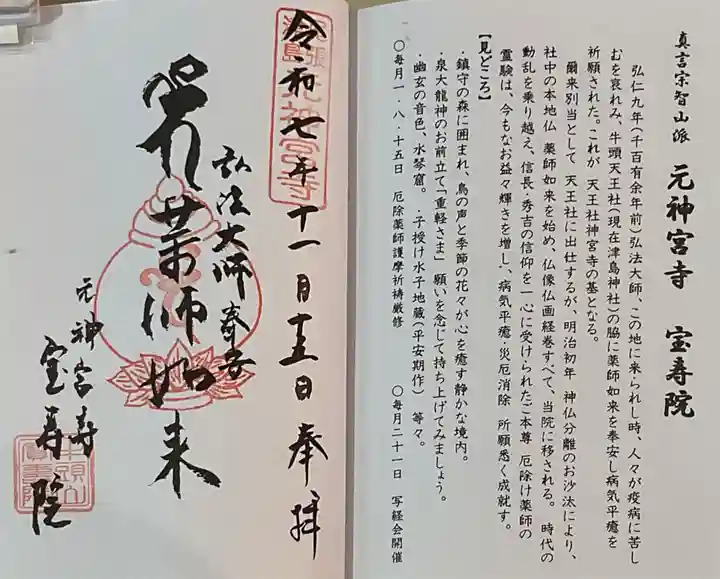 真言宗智山派 元神宮寺 宝寿院
弘仁九年(千百有余年前)弘法大師、この地に来られし時、人々が疫病に苦し
むを哀れみ、牛頭天王社(現在津島神社)の脇に薬師如来を奉安し病気平癒を
祈願された。これが 天王社神宮寺の基となる。
爾来別当として 天王社に出仕するが、明治初年 神仏分離のお沙汰により、
社中の本地仏 薬師如来を始め、仏像仏画経巻すべて、当院に移される。 時代の
動乱を乗り越え、信長・秀吉の信仰を一心に受けられたご本尊 厄除け薬師の
霊験は、今もなお益々輝きを増し、病気平癒 災厄消除 所願悉く成就す。
【見どころ】
・鎮守の森に囲まれ、鳥の声と季節の花々が心を癒す静かな境内。
・泉大龍神のお前立て「重軽さま」 願いを念じて持ち上げてみましょう。
・幽玄の音色、水琴窟。 ・子授け水子地蔵(平安期作) 等々。
〇毎月一・八・十五日 厄除薬師護摩祈祷厳修 〇毎月二十一日 写経会開催
令和七年十一月十五日 奉拝
尾張津島 元神宮寺
弘法大師奉安
薬師如来
元神宮寺
宝寿院